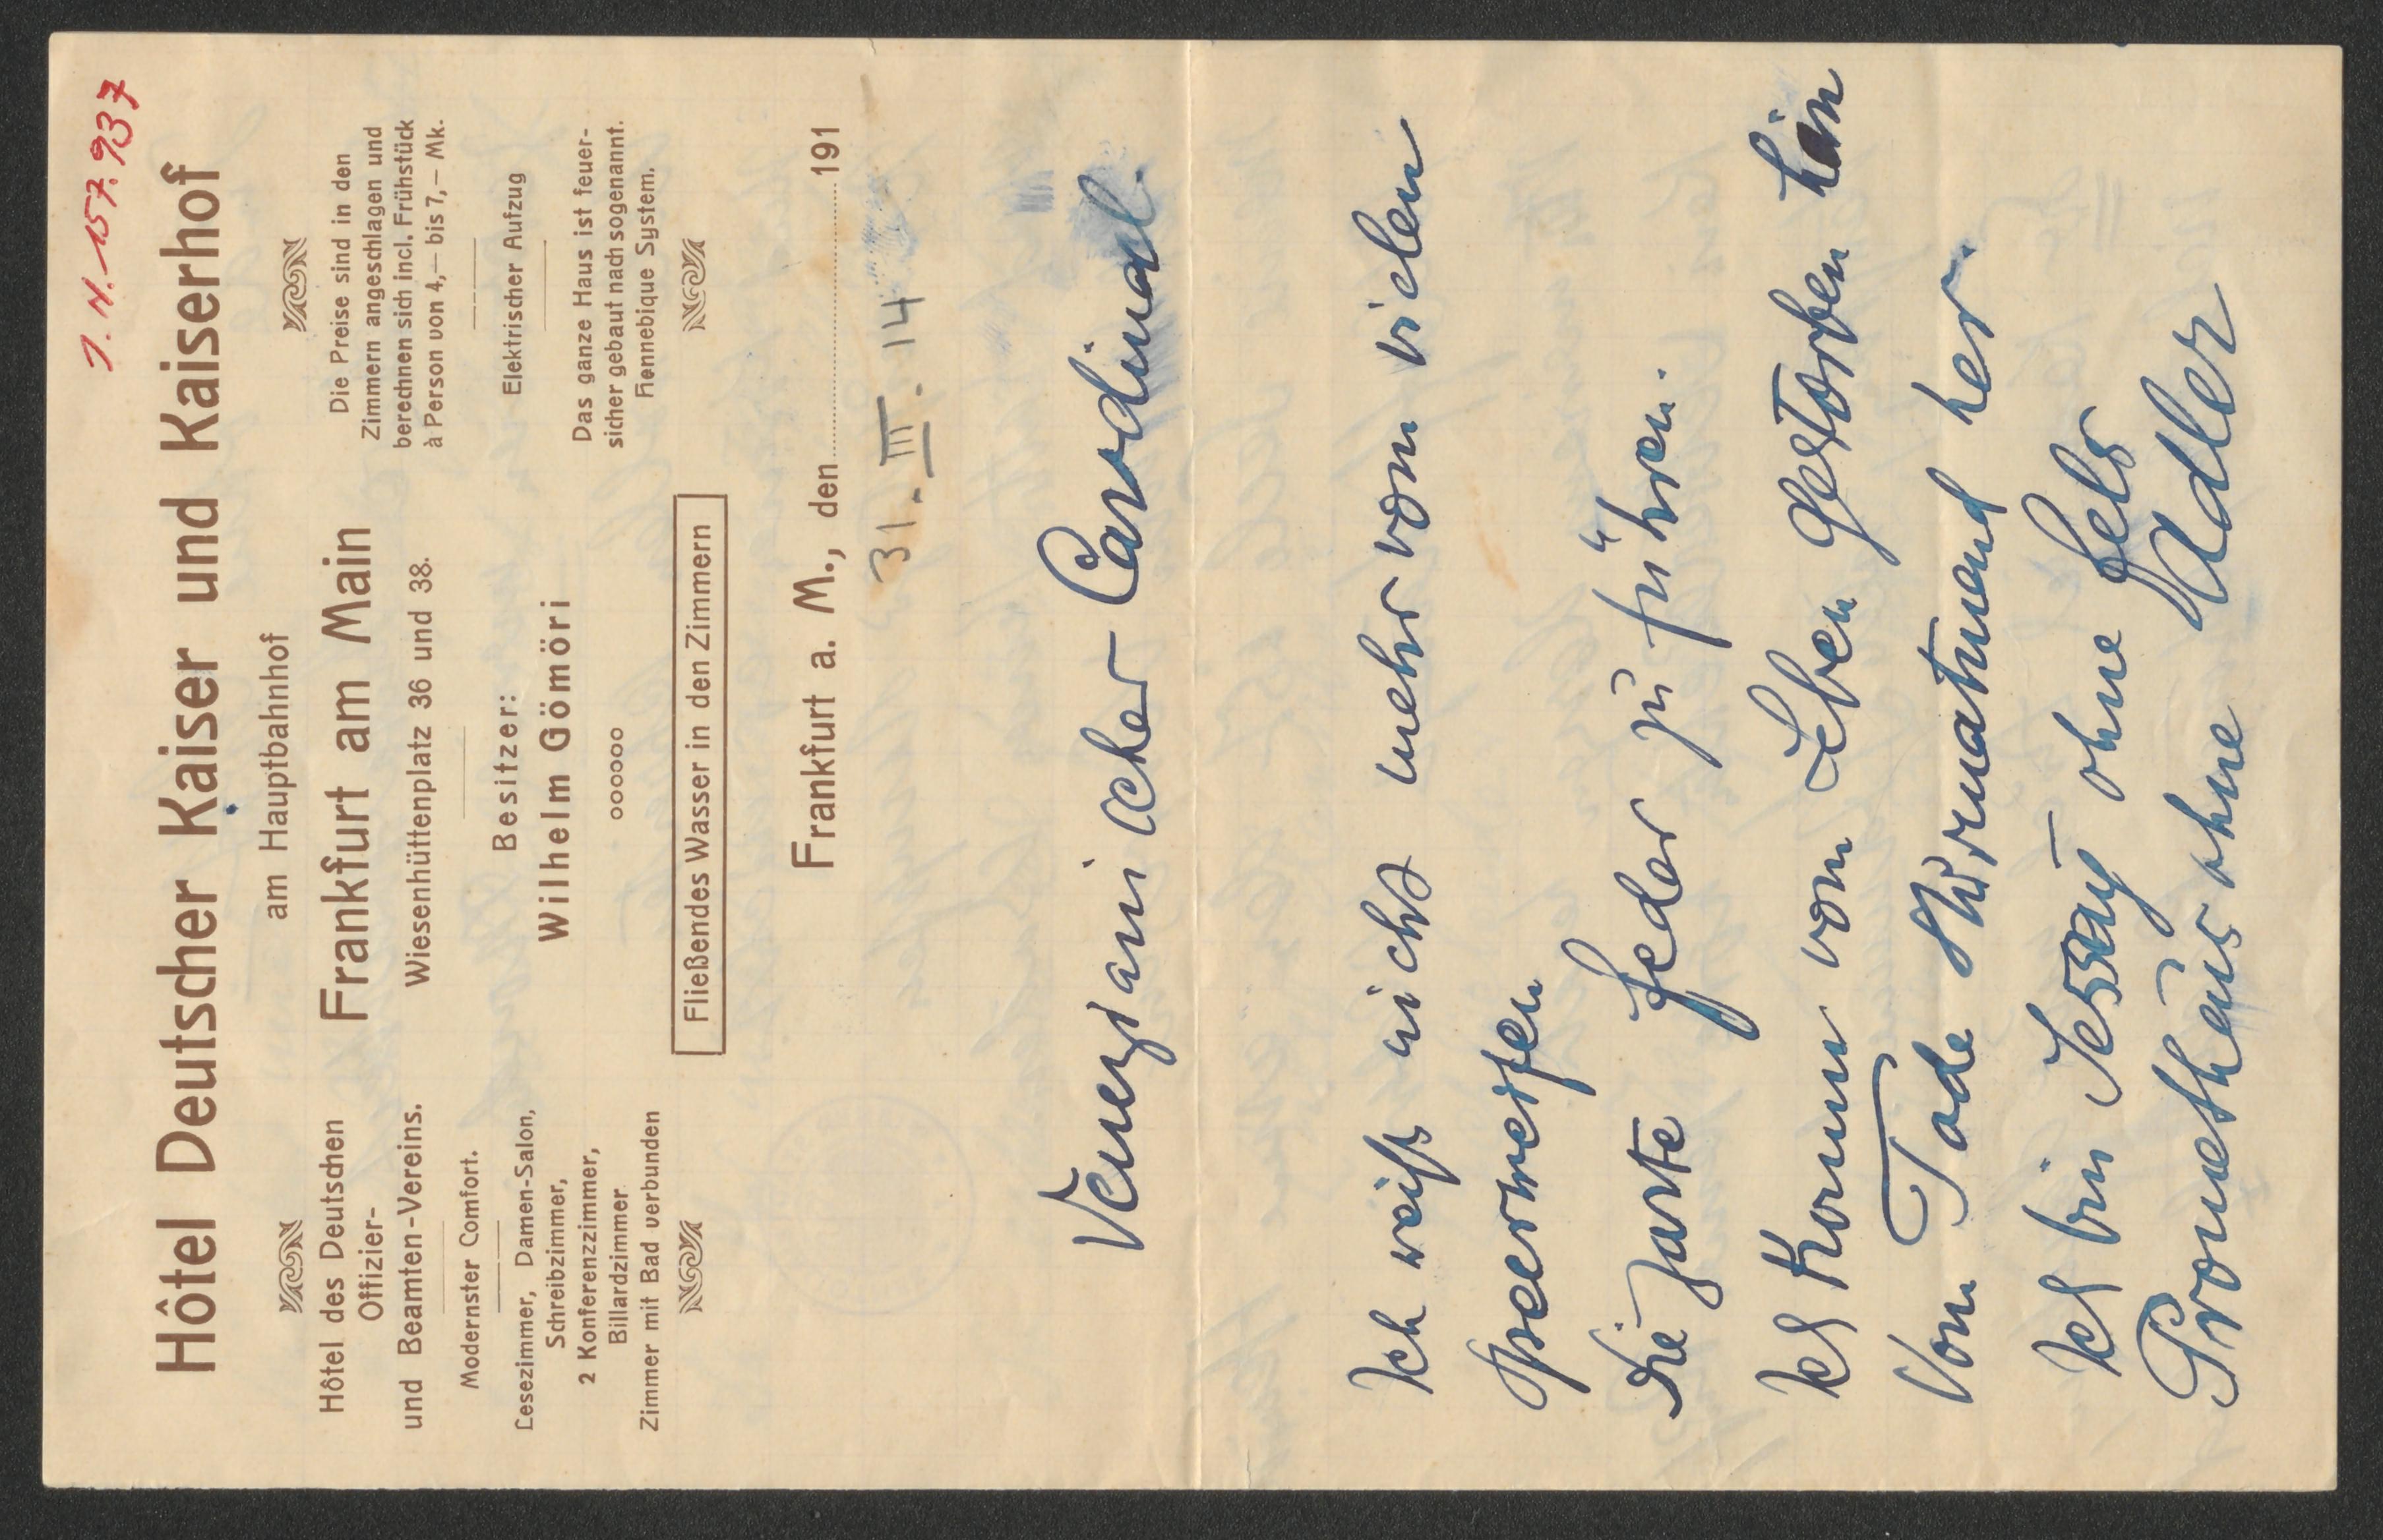 J. N. 157.937
Hôtel Deutscher Kaiser und Kaiserhof
am Hauptbahnhof
Frankfurt am Main
Wiesenhüttenplatz 36 und 38.
Besitzer:
Wilhelm Gömöri
oooooo
Hôtel des Deutschen
Offizier-
und Beamten-Vereins.
Modernster Comfort.
Lesezimmer, Damen-Salon,
Schreibzimmer,
2 Konferenzzimmer,
Billardzimmer
Zimmer mit Bad verbunden
Die Preise sind in den
Zimmern angeschlagen und
berechnen sich incl. Frühstück
à Person von 4,— bis 7,— Mk.
Elektrischer Aufzug
Das ganze Haus ist feuer-
sicher gebaut nach sogenannt.
Hennebique System.
Fließendes Wasser in den Zimmern
Frankfurt a. M., den 191
31. III. 14
Venezianischer Cardinal.
Ich weiß nicht mehr vom vielen
Speerwerfen
Die zarte Feder zu führen.
Ich komm vom Leben gestorben hin
Vom Tode sturmatmend her.
Ich bin Jessaiy ohne Fels
Prometheus ohne Adler